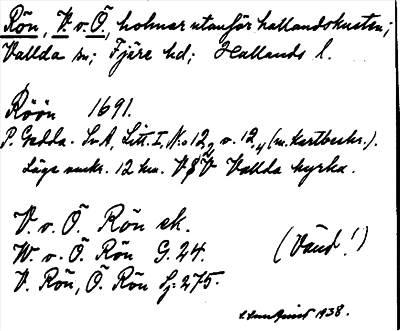 Rön, V. o. Ö., holmar utanför hallandskusten;
Vallda sn; Fjäre hd; Hallands l.
Röön 1691.
P. Gedda. Sv A, Litt. I, No 12, o. 12 (m. kartbeskr.).
Läge unkr. 12 km. V Vallda kyrka.
V. o. Ö. Rön sk.
W. o. Ö. Rön G. 24.
(Vänd!)
V. Rön, Ö. Rön Sj. 275.
1938.